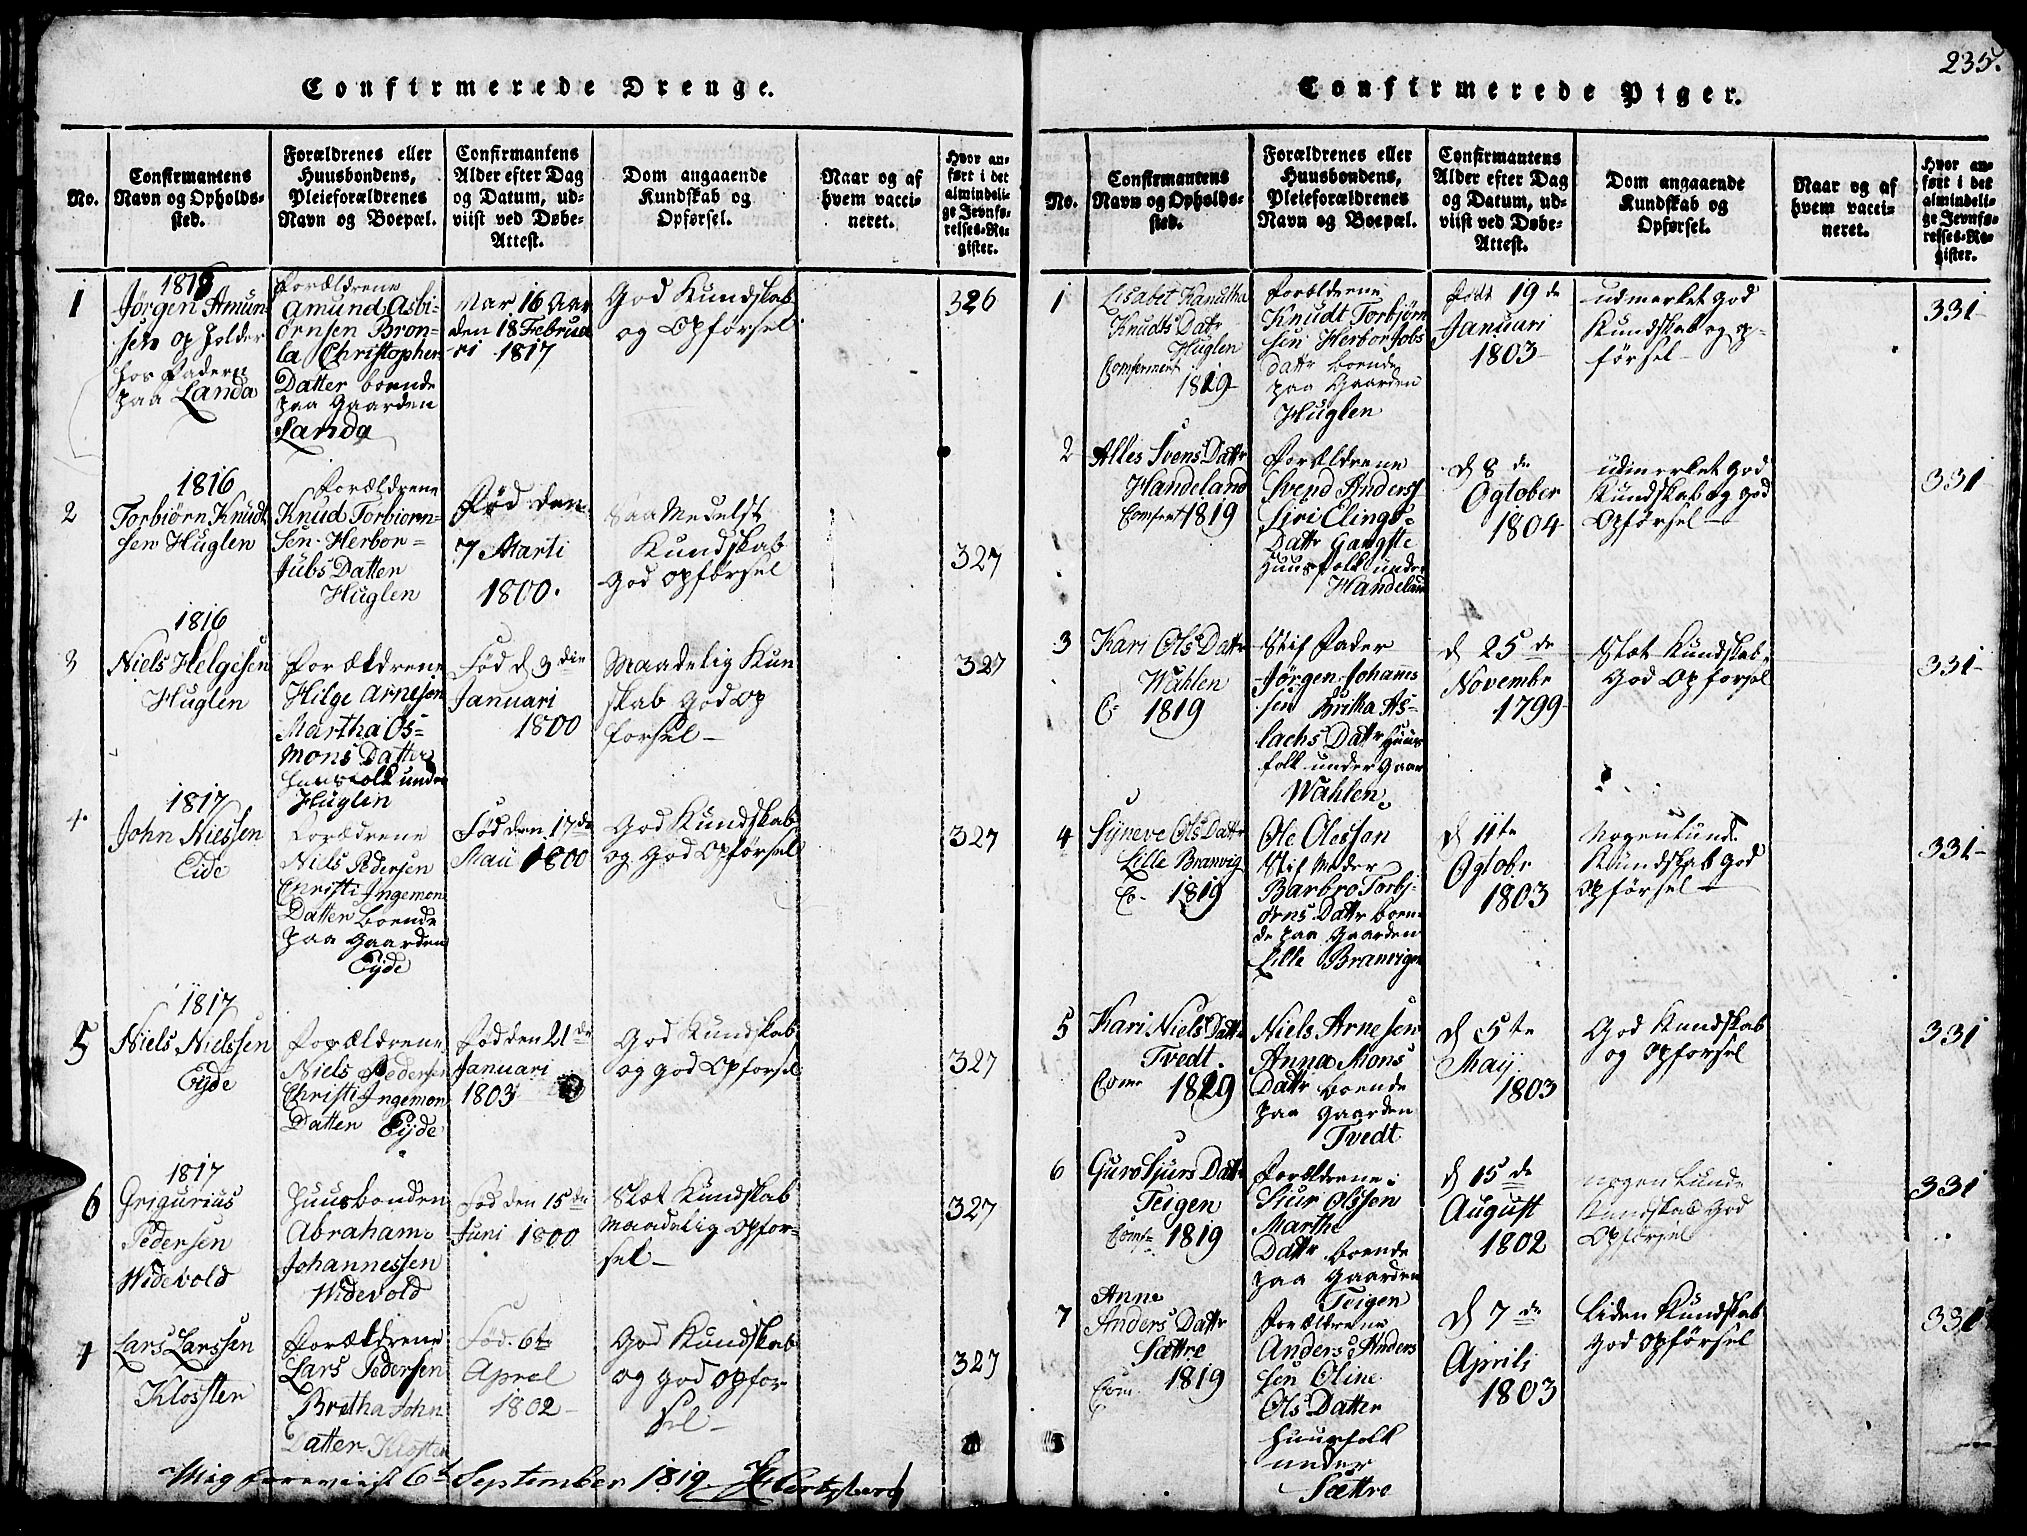 235.
Confirmerede Drenge.
No.
Confirmantens
Navn og Opholds-
sted.
Forældrenes eller
Huusbondens,
Pleieforældrenes
Navn og Boepæl.
Confirmantens
Alder efter Dag
og Datum, ud-
viist ved Døbe-
Attest.
Dom angaaende
Kundskab og
Opførsel.
Naar og af
hvem vacci-
neret.
Hvor an-
ført i det
almindeli-
ge Jevnfø-
relses-Re-
gister.
1
1816
Jørgen Amun
sen op holder
hos Faderen
paa Landa
Forældrene
Amund Asbi-
ørnsen Bron-
la Christopher
Datter boende
paa Gaarden
Landa
Var 16 Aar
den 18 Februa
ri 1817
God Kundskab
og Opførsel
326
2
1816
Torbiørn Knudt
sen Huglen
Forældrene
Knud Torbiorn-
sen Herbor-
Jübs Datter
Huglen
Fød den
7 Marti
1800.
Saa Medelst
Kundskab
God opførsel
327
3
1816
Niels Helgesen
Huglen
Forældrene
Hilge Arnesen
Martha Os-
mons Datter
Huusfolk under
Huglen
Fød d 3 die
Januari
1800
Maadelig Kun
skab God op
forsel
327
4
1817
John Nielsen
Eide
Forældrene
Nils Pedersen
Christi Ingemon
Datter boende
paa Gaarden
Eyde
Fød den 17 de
Maii 1800
God Kundskab
og God Opførsel
327
5
1817
Niels Nielsen
Eyde
Forældrene
Niels Pedersen
Christi Ingemon
Datter Eyde
Fød den 21 de
Januari
1803
God Kundskab
og god Opforsel
327
6
1817
Grigurius
Pedersen
Widevold
Huusbonden
Abraham
Johannessen
Widevold
Fød den 15 de
Juni 1800
Slet Kundskab
maadelig opfor-
sel
327
7
Lars Larssen
Kloster
Forældrene
Lars Pedersen
Bretha John
Datter Kloster
Fød. 6te
Aprel
1802
God Kundskab
og god opfor-
sel
327
Mig foreviist 6te September 1819 Hertzberg
Confirmerede Piger.
No.
Confirmantens
Navn og Opholds-
sted.
Forældrenes eller
Huusbondens,
Pleieforældrenes
Navn og Boepæl.
Confirmantens
Alder efter Dag
og Datum, ud-
viist ved Døbe-
Attest.
Dom angaaende
Kundskab og
Opførsel.
Naar og af
hvem vacci-
neret.
Hvor an-
ført i det
almindeli-
ge Jevnfø-
relses-Re-
gister.
1
Lisabet Kanutha
Knudts Datr
Huglen
1819
Forælderne
Knudt Torbjørn
sen Herbor Jobs
datr boende
paa Gaarden
Huglen
Født 19 de
Januari
1803
udmerket god
Kundskab og op-
førsel
331
2
Alles Svens Dattr
Handeland
1819
Forældrene
Svend Anders
Siri Elings-
Dattr Gangste
Huusfolk under
Handeland
d 8 de
Ogtober
1804
udmerket God
Kundskab og god
Opførsel
331
3
Kari Ols Datr
Wahlen
C 1819
Stif Fader
Jørgen Johannes
sen Britha As-
lachs Datr Huus
folk under Gaar
Wahlen
d 25 de
Novembr
1799
Slet Kundskab
God Opforsel
331
4
Syneve Ols Datr
Lille Branvig
Co. 1819
Ole Olessøn
Stif Moder
Barbro Torbj-
ørns Dattr boen-
de paa Gaarden
Lille Branvigen
d 11te
Ogtobr
1803
Nogenlunde
Kundskab God
opførsel
331
5
Kari Niels Dattr
Tvedt.
1819
Niels Arnesen
Anna Mons
Dattr boende
paa Gaarden
Tvedt
d 5te
May
1803
God Kundskab
og opforsel
331
6
Guro Sjurs Dattr
Teigen
1819
Forældrene
Siur Olssen
Marthe
Dattr boende
paa Gaarden
Teigen
d 15 de
August
1802
nogen lunde
Kundskab God
Opførsel
331
7
Anne
Anders Dattr
Sættre
1819
Forældrene
Anders Anders
sen Oline
Ols Datter
Huusfolk
under
Sættre
d 7 de
Aprili
1803
Liden Kundskab
God opførsel
331